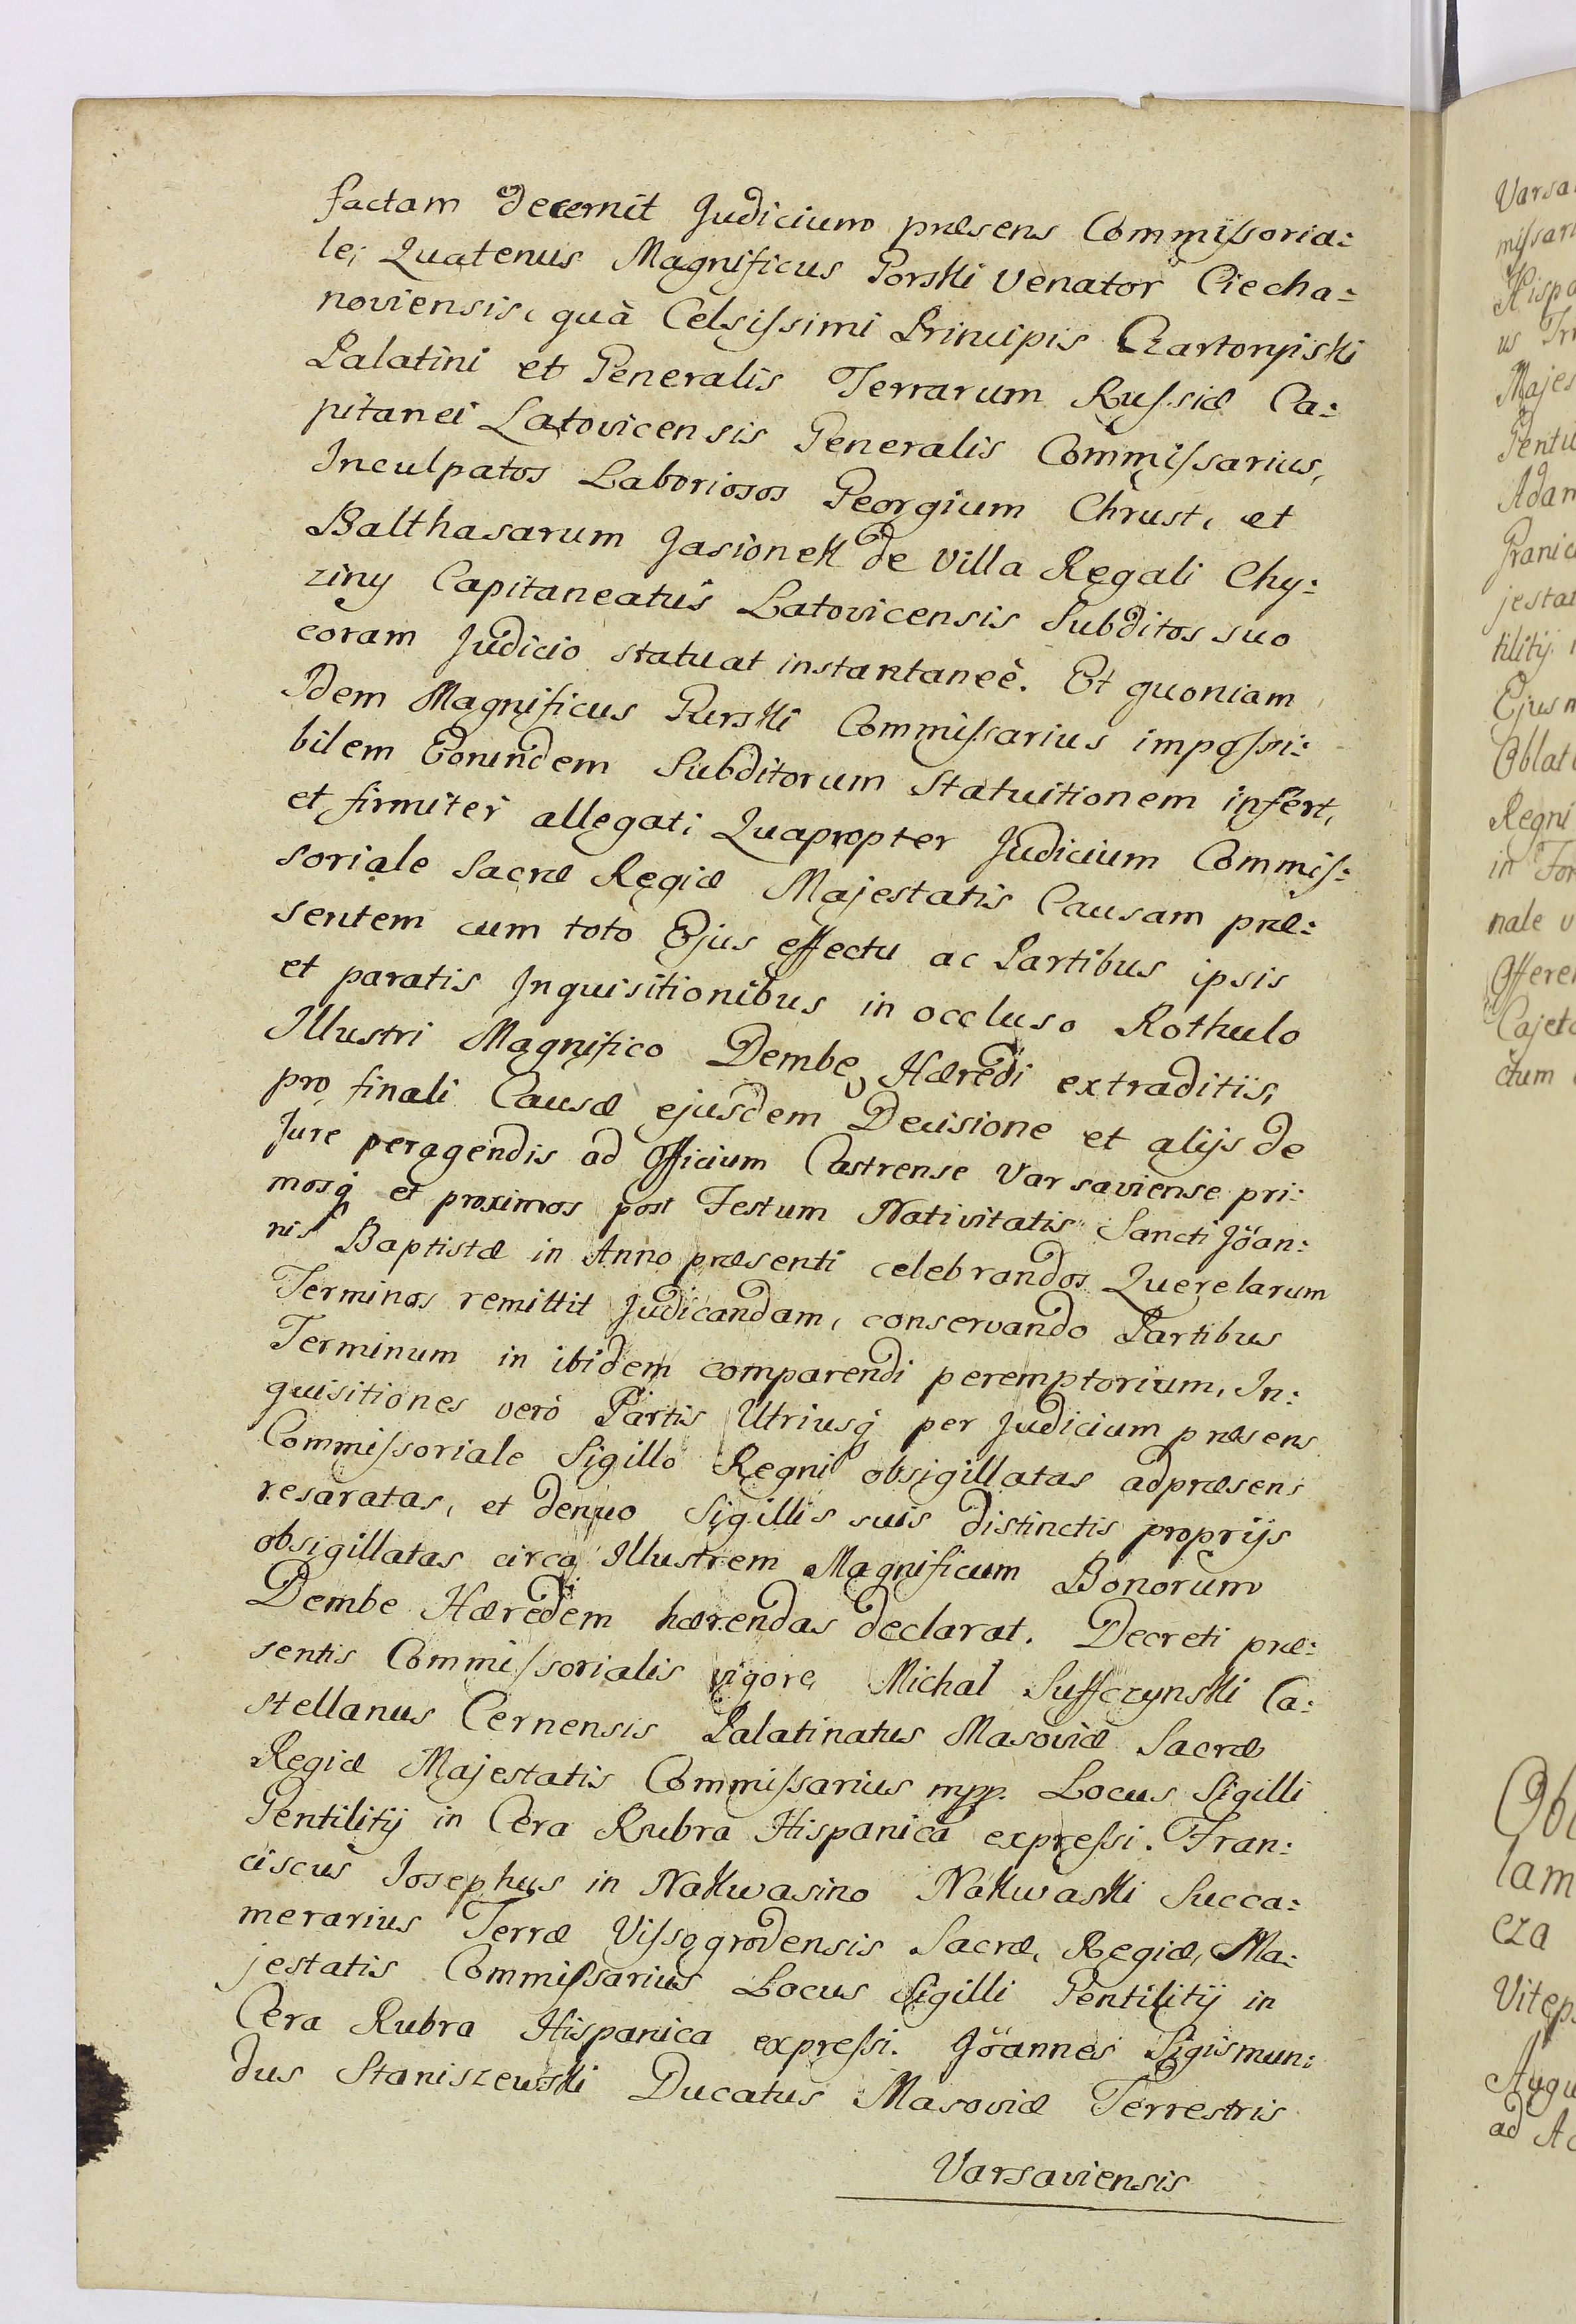 factam decernit Judicium præsens Commissoria:
le; Quatenus Magnificus Gorski Venator Ciecha:
noviensis, quà Celsissimi Principis Czartoryiski
Palatini et Generalis Terrarum Russiæ Ca:
pitanei Latovicensis Generalis Commissarius,
Inculpatos Laboriosos Georgium Chrust, et
Balthasarum Jasionek de Villa Regali Chy:
ziny Capitaneatus Latovicensis Subditos suo
coram Judicio statuat instantaneè. Et quoniam
Idem Magnificus Gurski Commissarius impossi:
bilem Eorundem Subditorum Statuitionem infert,
et firmiter allegat; Quapropter Judicium Commis:
soriale Sacræ Regiæ Majestatis Causam præ:
sentem cum toto Ejus effectu ac Partibus ipsis
et paratis Inquisitionibus in occluso Rothulo
Illustri Magnifico Dembe Hæredi extraditis,
pro finali Causæ ejusdem Decisione et alijs de
Jure peragendis ad Officium Castrense Varsaviense pri:
mosq́ et proximos post Festum Nativitatis Sancti Jöan:
nis Baptistæ in Anno præsenti celebrandos Querelarum
Terminos remittit Judicandam, conservando Partibus
Terminum in ibidem comparendi peremptorium, In:
quisitiones verò Partis Utriusq́ per Judicium præsens
Commissoriale Sigillo Regni obsigillatas adpræsens
resaratas, et denuo Sigillis suis distinctis proprijs
obsigillatas circa Illustrem Magnificum Bonorum
Dembe Hæredem hærendas declarat. Decreti præ:
sentis Commissorialis vigore, Michal Suffczynski Ca:
stellanus Cernensis Palatinatus Masoviæ Sacræ
Regiæ Majestatis Commissarius mpp. Locus Sigilli
Gentilitij in Cera Rubra Hispanica expressi. Fran:
ciscus Josephus in Nakwasino Nakwaski Succa:
merarius Terræ Vissogrodensis Sacræ, Regiæ, Ma:
jestatis Commissarius Locus Sigilli Gentilitij in
Cera Rubra Hispanica expressi. Jöannes Sigismun:
dus Staniszewski Ducatus Masoviæ Terrestris
Varsaviensis